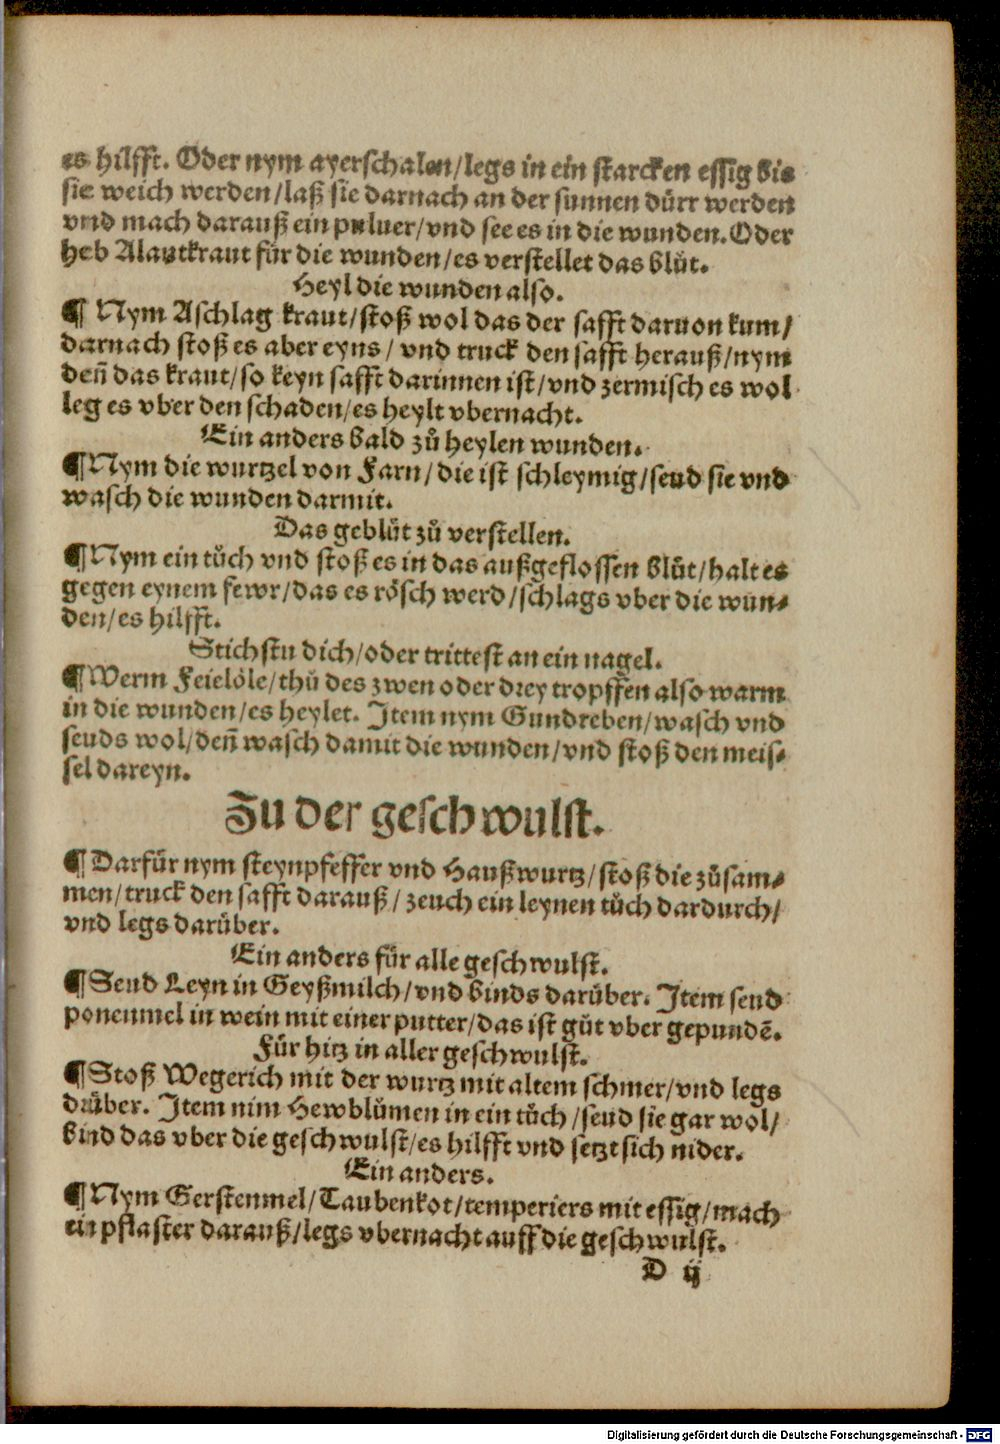 es hilfft. Oder nym ayerschalen/legs in ein starcken essig bis
sie weich werden/laß sie darnach an der sunnen dürr werden
vnd mach darauß ein puluer/vnd see es in die wunden. Oder
heb Alautkraut für die wunden/es verstellet das blůt.
Heyl die wunden also.
¶ Nym Aschlag kraut/stoß wol das der safft daruon kum/
darnach stoß es aber eyns/ vnd truck den safft herauß/nym
deñ das kraut/so keyn safft darinnen ist/vnd zermisch es wol
leg es vber den schaden/es heylt vbernacht.
Ein anders bald zů heylen wunden.
¶ Nym die wurtzel von Farn/die ist schleymig/seud sie vnd
wasch die wunden darmit.
Das geblůt zů verstellen.
¶ Nym ein tůch vnd stoß es in das außgeflossen blůt/halt es
gegen eynem fewr/das es rösch werd/schlags vber die wun⸗
den/es hilfft.
Stichstu dich/oder trittest an ein nagel.
¶ Werm Feielöle/thů des zwen oder drey tropffen also warm
in die wunden/es heylet. Item nym Gundreben/wasch vnd
seuds wol/deñ wasch damit die wunden/vnd stoß den meis⸗
sel dareyn.
Zu der geschwulst.
¶ Darfür nym steynpfeffer vnd Haußwurtz/stoß die zůsam⸗
men/truck den safft darauß/ zeuch ein leynen tůch dardurch/
vnd legs darüber.
Ein anders für alle geschwulst.
¶ Seud Leyn in Geyßmilch/vnd binds darüber. Item seud
ponenmel in wein mit einer putter/das ist gůt vber gepundẽ.
Für hitz in aller geschwulst.
¶ Stoß Wegerich mit der wurtz mit altem schmer/vnd legs
drüber. Item nim Hewblůmen in ein tůch/seud sie gar wol/
bind das vber die geschwulst/es hilfft vnd setzt sich nider.
Ein anders.
¶ Nym Gerstenmel/Taubenkot/temperiers mit essig/mach
ein pflaster darauß/legs vbernacht auff die geschwulst.
D ij
Digitalisierung gefördert durch die Deutsche Forschungsgemeinschaft - DFG